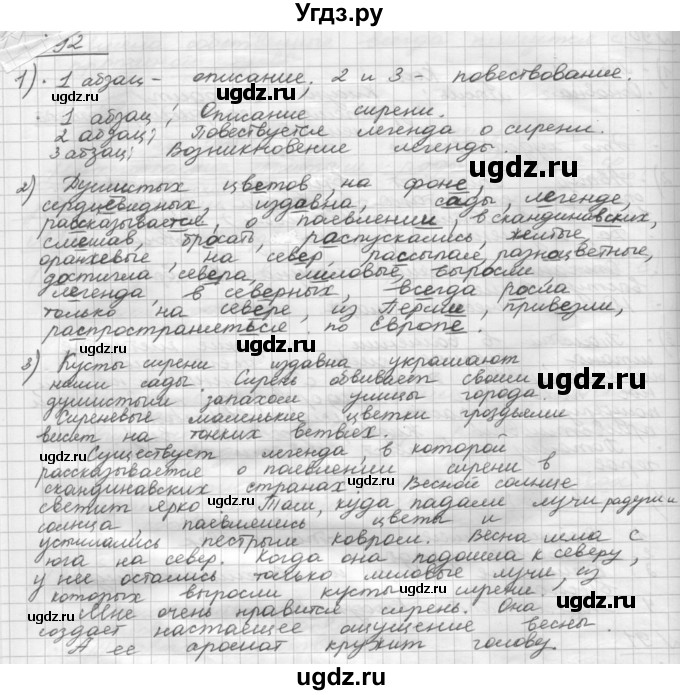 Угдз.ру
92
1) · 1 абзац – описание. 2 и 3 – повествование.
ugdz.ru ugdz.ru
· 1 абзац; Описание сирени.
2 абзац; Повествуется легенда о сирени.
3 абзац; Возникновение легенды. ugdz.ru
2) Душистых цветов, на фоне,
сердцевидных, издавна, сады, легенде,
рассказывается, о появлении, в скандинавских,
смешав, бросать, распускались, желтые,
оранжевые, на север, рассыпала, разноцветные,
достигла севера, лиловые, выросли
легенда, в северных, всегда росла
только на севере, из Персии, привезли,
распространяться по Европе.
ugdz.ru ugdz.ru
3) Кусты сирени издавна украшают
наши сады. Сирень обвивает своим
душистым запахом улицы города. ugdz.ru
Сиреневые маленькие цветки гроздьями
висят на тонких ветвях.
ugdz.ru Существует легенда, в которой
рассказывается о появлении сирени в
скандинавских странах. Весной солнце
ugdz.ru
светит ярко. Там, куда падали лучи радуги и
солнца, появлялись цветы и
устилались пестрым ковром. Весна шла с
юга на север. Когда она подошла к северу,
у нее остались только лиловые лучи, из
которых выросли кусты сирени.
ugdz.ru ugdz.ru
Мне очень нравится сирень. Она
создает настоящее ощущение весны.
А ее аромат кружит голову.
ugdz.ru ugdz.ru